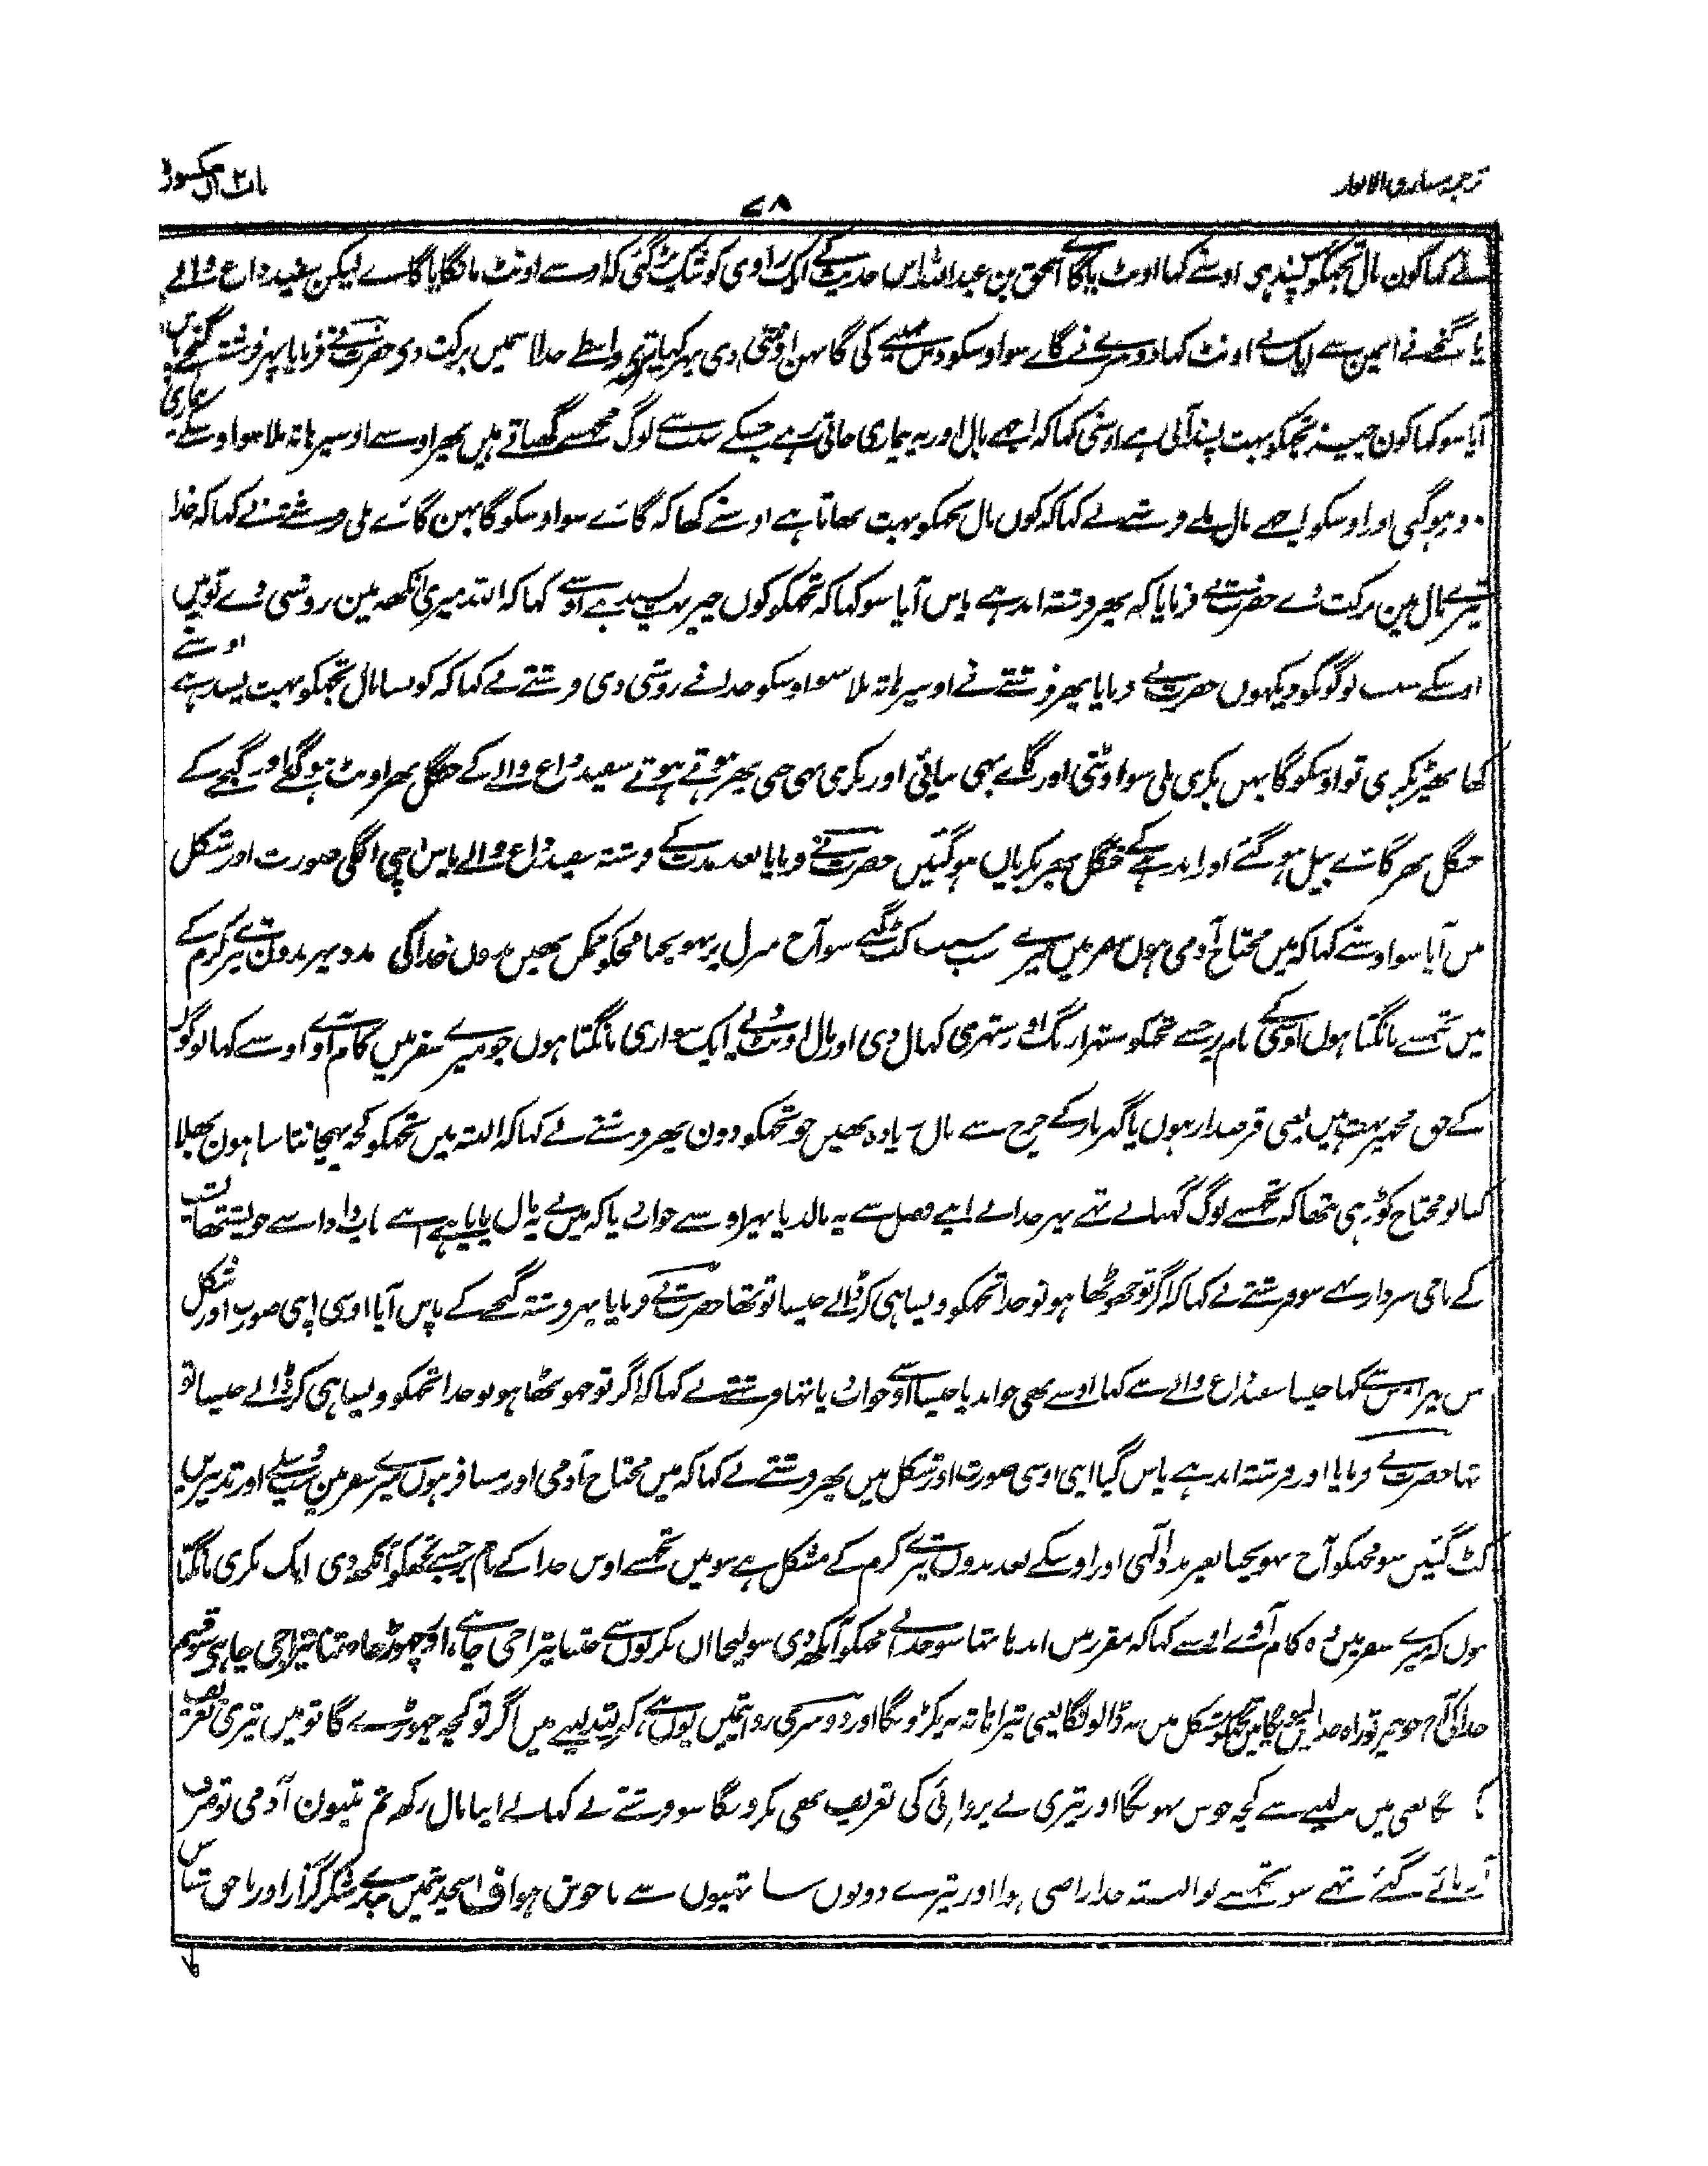 ترجمہ مشارق الانوار
۷۸
باب ۲ ان مکسورہ
نے کہا کون مال تجھکو پسند ہی اوسنے کہا اونٹ یا گاے اسحق بن عبداللہ اس حدیث کے ایک راوی کو شک پڑ گئی کہ اوسے اونٹ مانگا یا گاے لیکن سفید داغ والے
یا گنجے نے ایمین سے ایک نے اونٹ کہا دوسرے نے گاے سو اوسکو دس مہینے کی گابہن اونٹنی دی پہر کہا تیرے واسطے خدا اسمیں برکت دی حضرت نے فرمایا پہر فرشتہ گنجے پاس
آیا سو کہا کون چیز تجھکو بہت پسند آتی ہے اوسنی کہا کہ اچھے بال اور یہ بیماری جاتی رہے جسکے سبب سے لوگ مجھسے گھناتے ہیں پھر اوسے اوسپر ہاتھ ملا سو اوسکے بیماری
دور ہو گئی اور اوسکو اچھے بال ملے فرشتے نے کہا کہ کون مال تجھکو بہت بھاتا ہے اوسنے کھا کہ گائے سو اوسکو گابہن گائے ملی فرشتے نے کہا کہ خدا
تیرے مال مین برکت دے حضرت نے فرمایا کہ پھر فرشتہ اندہے پاس آیا سو کہا کہ تجھکو کون چیز بہت پسند ہے اوسنے کہا کہ اللہ میری آنکھہ مین روشنی دے تو میں
اوسکے سبب لوگونکو دیکہوں حضرت نے فرمایا پھر فرشتے نے اوسپر ہاتہ ملا سو اوسکو خدا نے روشنی دی فرشتے نے کہا کہ کونسا مال تجھکو بہت پسند ہے اوسنے
کہا بھیڑ بکری تو اوسکو گابہن بکری ملی سو اونٹنی اور گاے بھی بیائی اور بکری بھی جنی پھر ہوتے ہوتے سفید داغ والے کے جنگل بھر اونٹ ہو گئے اور گنجے کے
جنگل بھر گائے بیل ہو گئے اور اندہے کے جنگل بھر بکریاں ہو گئیں حضرت نے فرمایا بعد مدت کے فرشتہ سفید داغ والے پاس اپنی اگلی صورت اور شکل
میں آیا سو اوسنے کہا کہ میں محتاج آدمی ہوں سفر میں میرے سب سبب کٹ گئے سو آج منزل پر پہونچنا مجھکو ممکن نہیں بدون خدا کی مدد پہر بدون تیرے کرم کے
میں تجھسے مانگتا ہوں اوسکے نام پر جسنے تجھکو ستہرا رنگ اور ستہری کہال دی اور مال اونٹ دیے ایک سواری مانگتا ہوں جو میرے سفر میں کام آوے اوسنے کہا لوگوں
کے حق مجھپر بہت ہیں یعنی قرضدار ہوں یا گہر بار کے خرچ سے مال زیادہ نہیں جو تجھکو دون پھر فرشتے نے کہا کہ البتہ میں تجھکو کچھ پہچانتا سا ہون بھلا
کیا تو محتاج کوڑہی نتھا کہ تجھسے لوگ گہناتے تہے پہر خدا نے اپنے فضل سے یہ مال دیا پہر اوسنے جواب دیا کہ میں نے یہ مال پایا ہے اپنے باپ دادا سے جو پشتہا پشت
کے نامی سردار تھے سو فرشتے نے کہا کہ اگر تو جھوٹھا ہو تو خدا تجھکو ویسا ہی کر ڈالے جیسا تو تھا حضرت نے فرمایا پہر فرشتہ گنجے کے پاس آیا اوسی اپنی صورت اور شکل
میں پہر اوس سے کہا جیسا سفید داغ والے سے کہا اوسنے بھی جواب دیا جیسا اوسنے جواب دیا تہا فرشتے نے کہا کہ اگر تو جھوٹھا ہو تو خدا تجھکو ویسا ہی کر ڈالے جیسا تو
تہا حضرت نے فرمایا اور فرشتہ اندہے پاس گیا اپنی اوسی صورت اور شکل میں پھر فرشتے نے کہا کہ میں محتاج آدمی اور مسافر ہوں میرے سفر مین سب وسیلے اور تدبیریں
کٹ گئیں سو مجھکو آج پہونچنا بغیر مدد الٰہی اور اوسکے بعد بدون تیرے کرم کے مشکل ہے سو میں تجھسے اوس خدا کے نام پر جسنے تجھکو آنکھہ دی ایک بکری مانگتا
ہوں کہ میرے سفر میں وہ کام آوے اوسنے کہا کہ مقرر میں اندہا تہا سو خدا نے مجھکو آنکھ دی سو لیجا ان بکریوں سے جتنا تیرا جی چاہے اور چھوڑ جا جتنا تیرا جی چاہے سو قسم
خدا کی آج جو چیز تو راہ خدا میں لیگا میں تجھکو مشکل میں نہ ڈالونگا یعنی تیرا ہاتہ نہ پکڑونگا اور دوسری روایتمیں یوں ہے کہ میں اگر تو کچھ چہوڑے گا تو میں تیری تعریف
نہ کرونگا یعنی میں نہ لینے سے کچھ خوش نہونگا اور تیری بے پروائی کی تعریف بھی نکرونگا سو فرشتے نے کہا لے اپنا مال رکھ تم تینون آدمی تو صرف
آزمائے گئے تہے سو تجھسے تو البتہ خدا راضی ہوا اور تیرے دونوں ساتھیوں سے ناخوش ہوا ف اس حدیثمیں بندے شکر گزار اور ناحق شناس